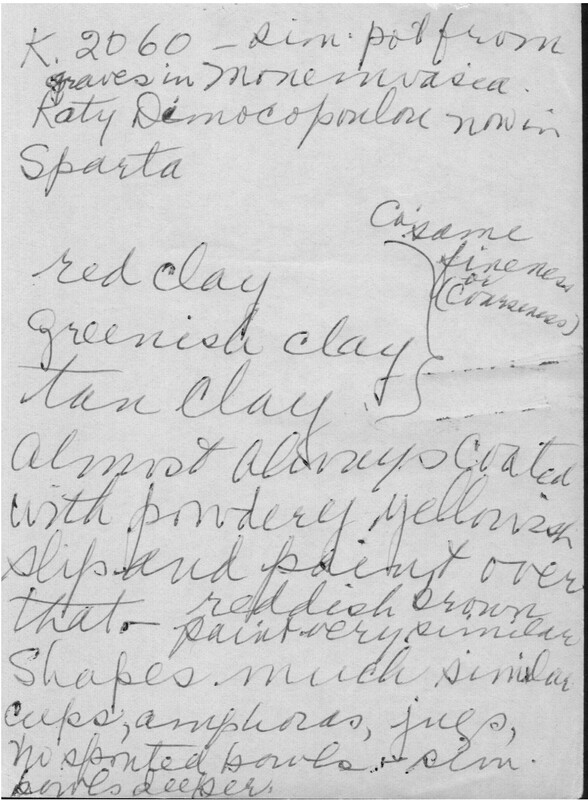 K. 2060 – sim. pot from
graves in Monemvasia.
Katy Dimocopoulou now in
Sparta
Ca. same
fineness
or
(Coarseness)
red clay
greenish clay
tan clay
almost always coated
with powdery yellowish
slip and paint over
that – reddish brown
paint very similar
Shapes much similar
cups, amphoras, jugs,
no spouted bowls – sim.
bowls deeper.